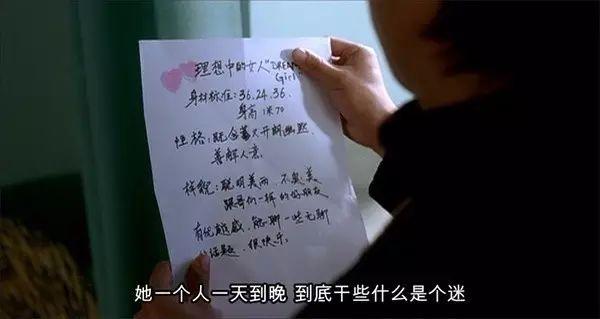 理想中的女人"DREAM
Girl"
身材标准:36.24.36.
身高1米70
性格:既含蓄又开朗幽默.
善解人意.
样貌:聪明美丽.不臭美.
跟哥们一样的好朋友
有优越感.能聊一些无聊
的话题.很快乐.
她一个人一天到晚 到底干些什么是个迷